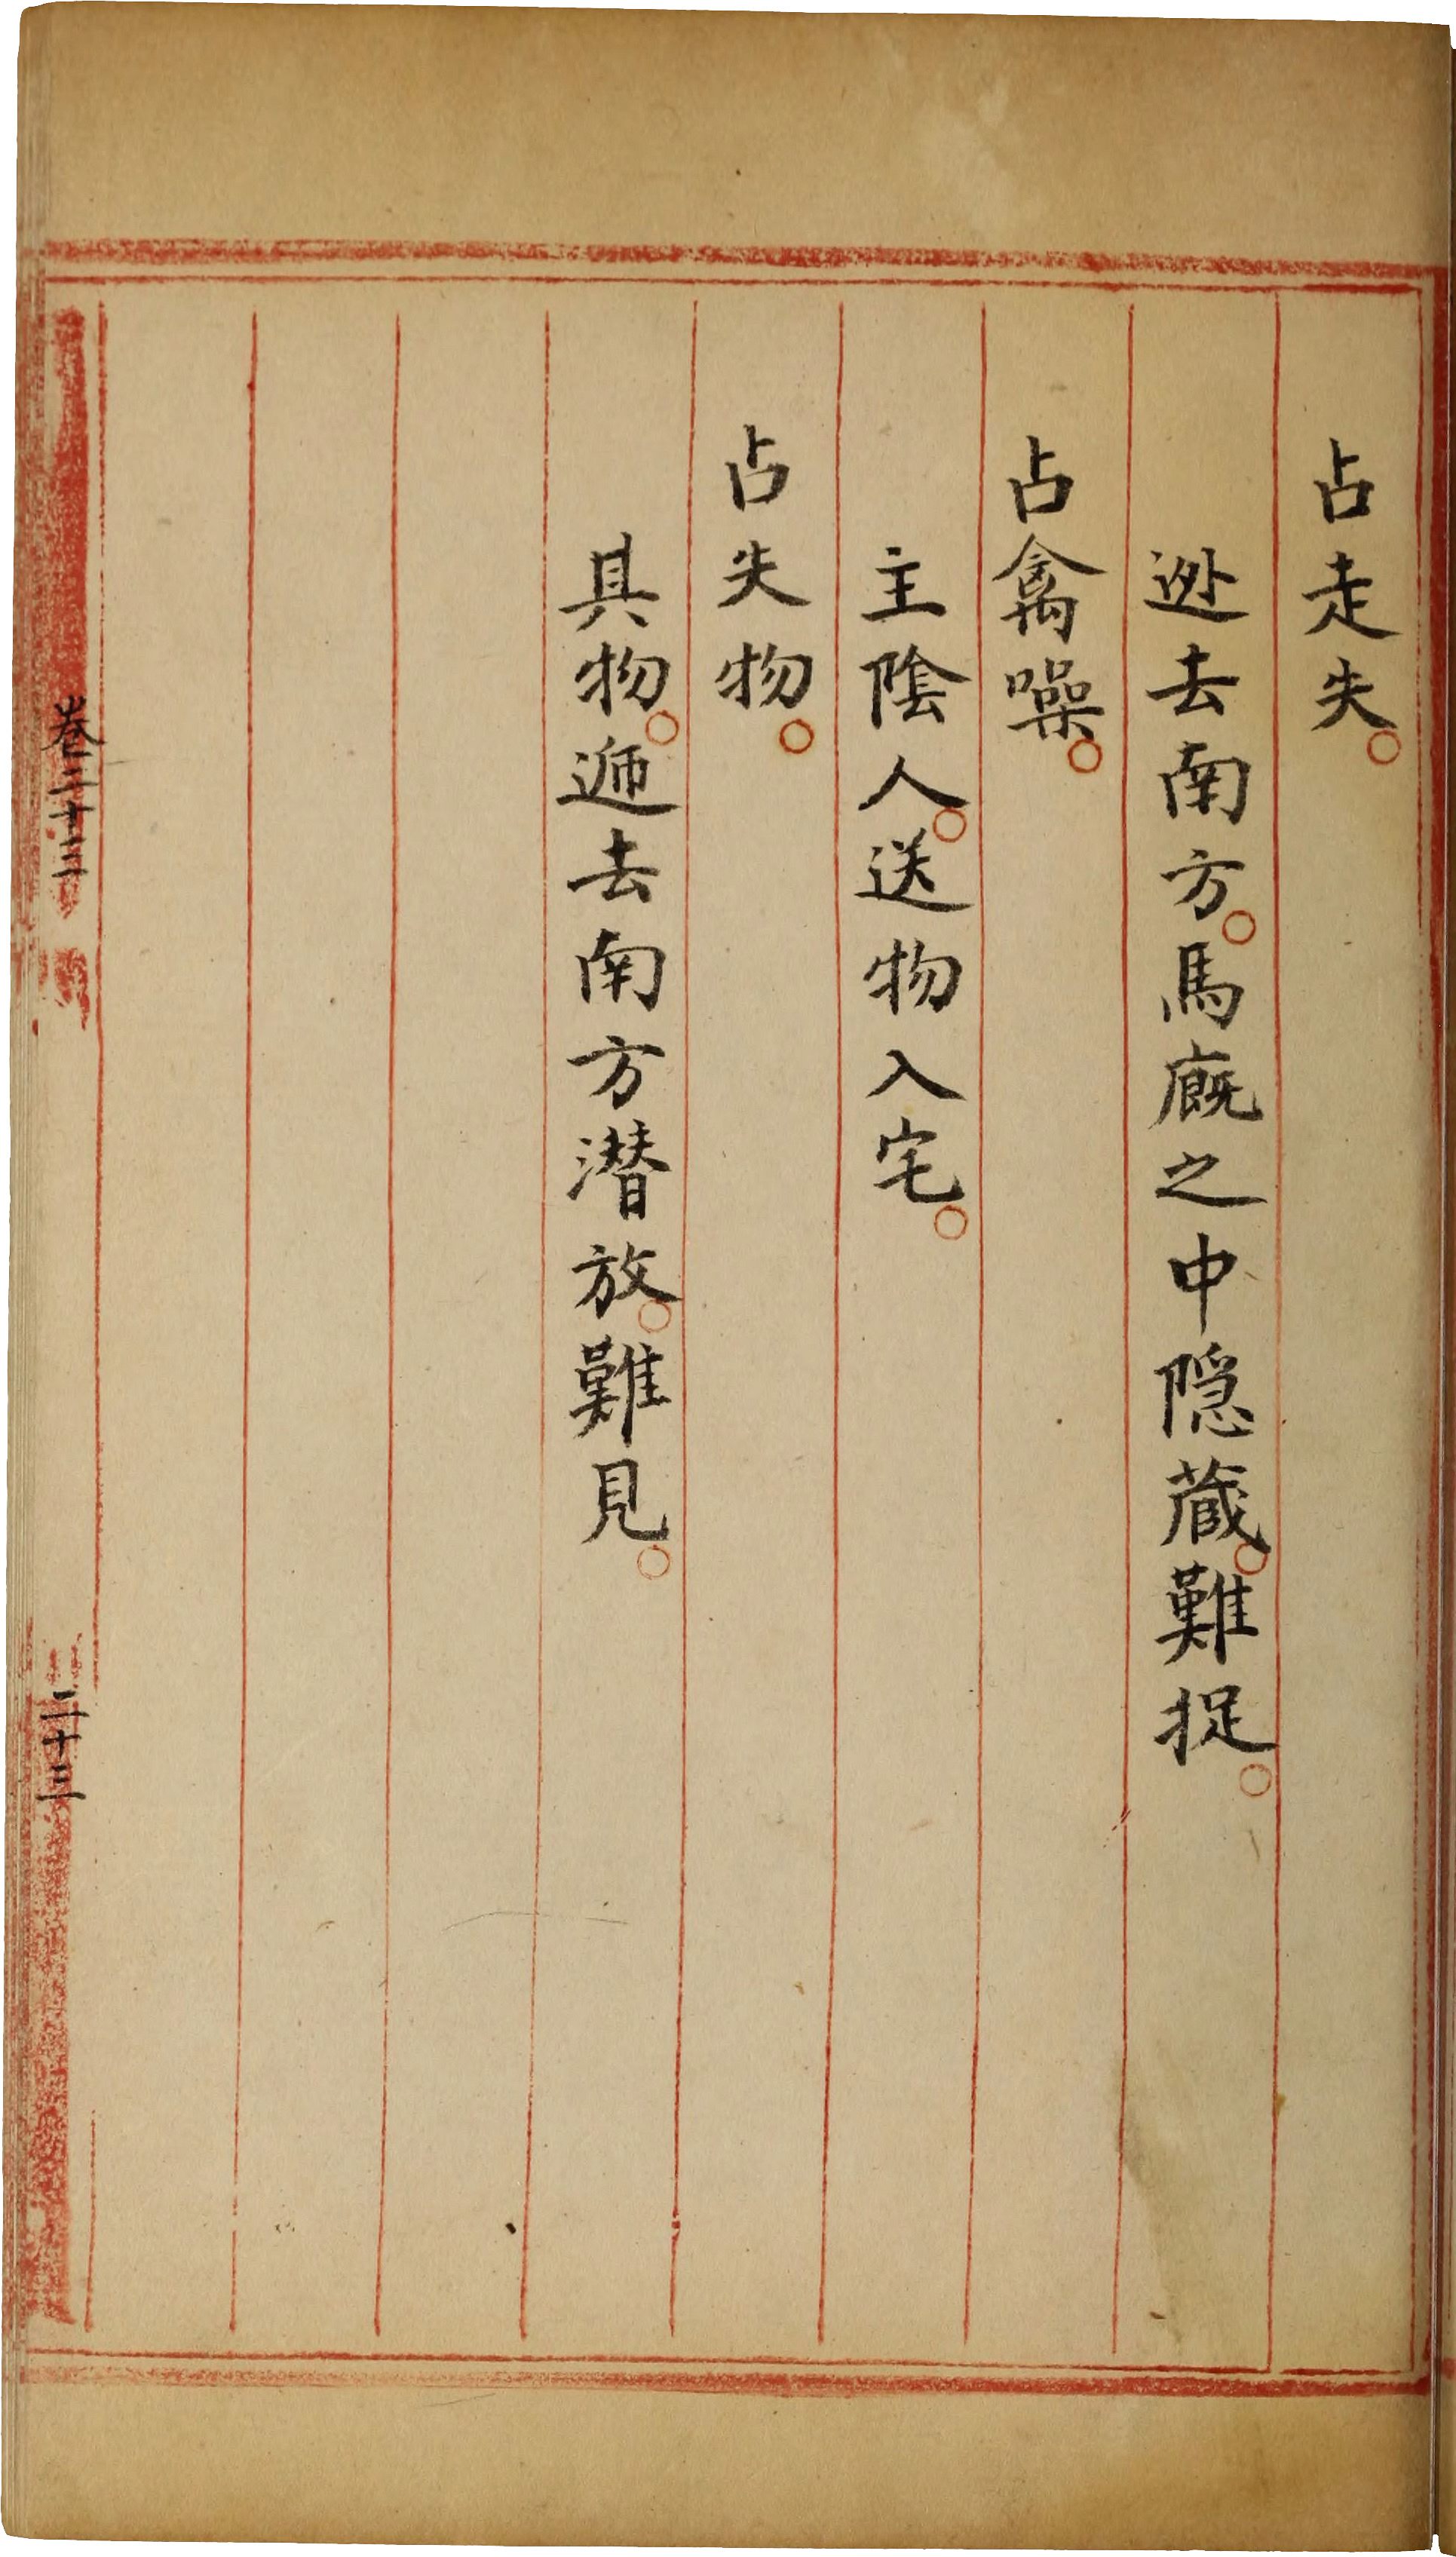 占走失。
逃去南方。馬廐之中隐蔵。難捉。
占禽噪。
主陰人。送物入宅。
占失物。
具物。逓去南方潜放。難見。
卷二十三
二十三